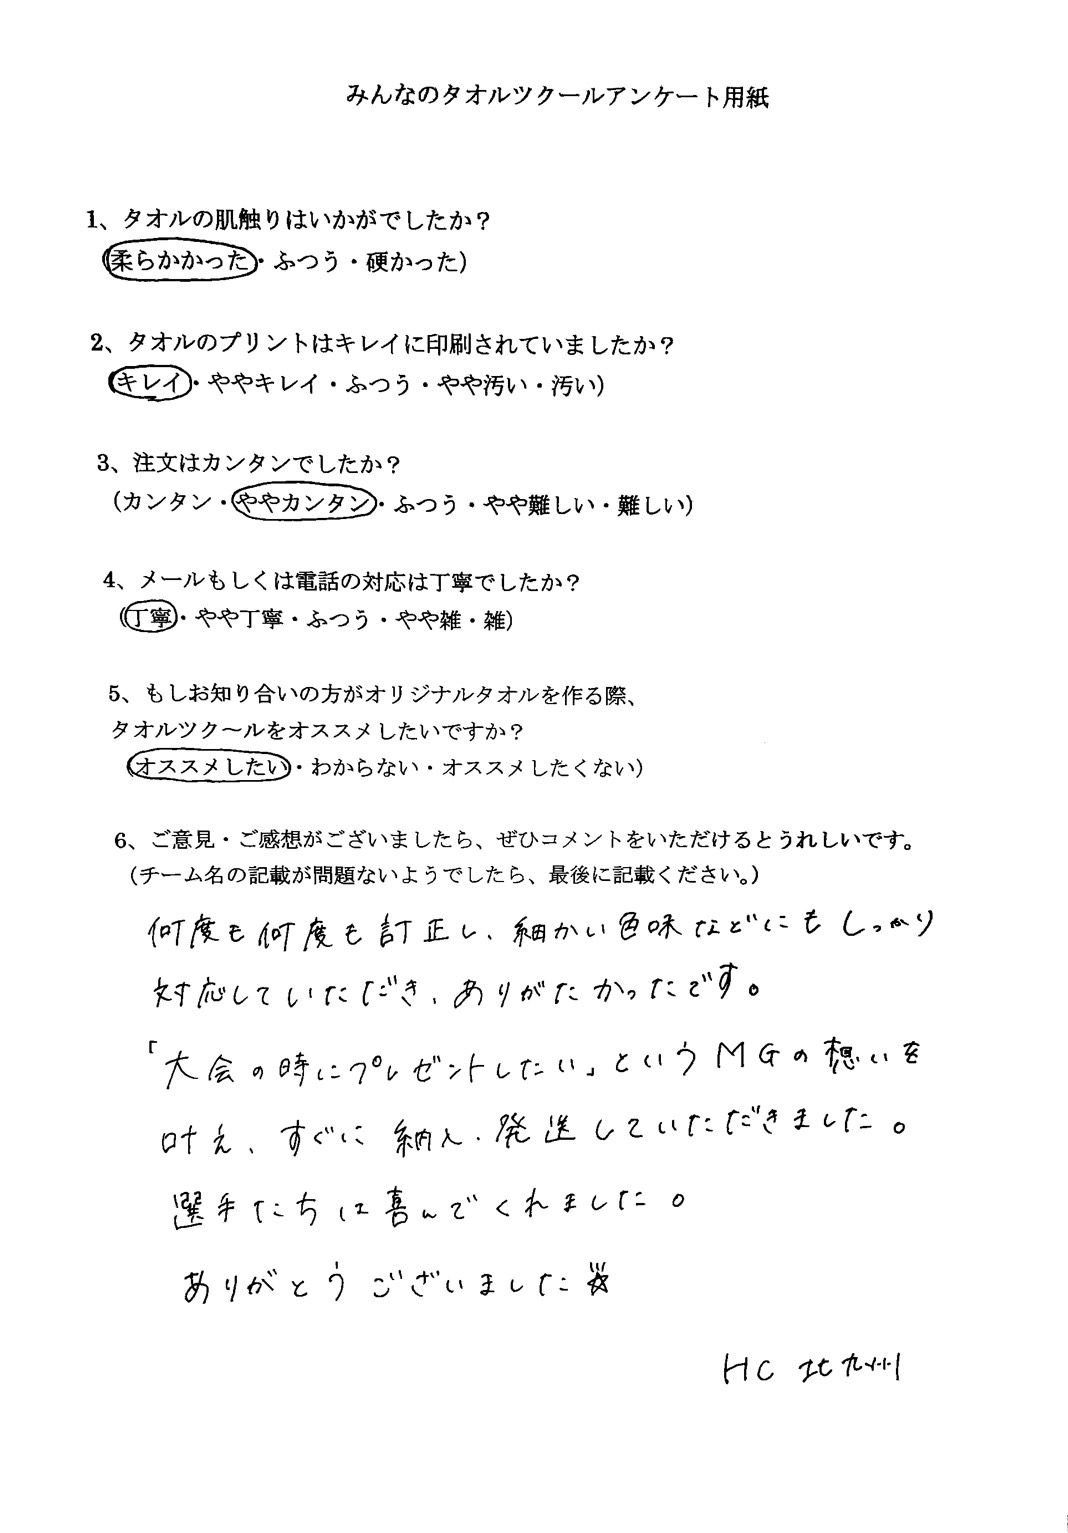 みんなのタオルツクールアンケート用紙
1、タオルの肌触りはいかがでしたか？
(柔らかかった・ふつう・硬かった)
2、タオルのプリントはキレイに印刷されていましたか？
(キレイ・ややキレイ・ふつう・やや汚い・汚い)
3、注文はカンタンでしたか？
(カンタン・ややカンタン・ふつう・やや難しい・難しい)
4、メールもしくは電話の対応は丁寧でしたか？
(丁寧・やや丁寧・ふつう・やや雑・雑)
5、もしお知り合いの方がオリジナルタオルを作る際、
タオルツク～ルをオススメしたいですか？
(オススメしたい・わからない・オススメしたくない)
6、ご意見・ご感想がございましたら、ぜひコメントをいただけるとうれしいです。
(チーム名の記載が問題ないようでしたら、最後に記載ください。)
何度も何度も訂正し、細かい色味などにもしっかり
対応していただき、ありがたかったです。
「大会の時にプレゼントしたい」というMGの想いを
叶え、すぐに納入、発送していただきました。
選手たちは喜んでくれました。
ありがとうございました☆
HC 北九州